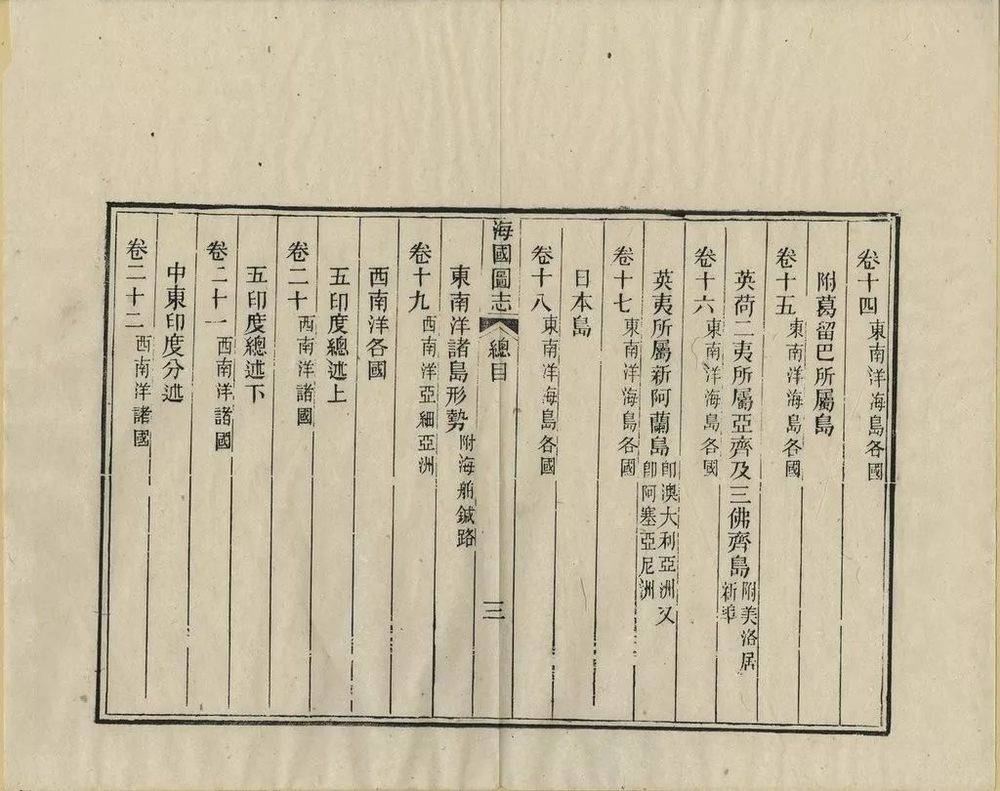 卷十四東南洋海島各國
附葛留巴所屬島
卷十五東南洋海島各國
英荷二夷所屬亞齊及三佛齊島附美洛居
新埠
卷十六東南洋海島各國
英夷所屬新阿蘭島卽澳大利亞洲又
卽阿塞亞尼洲
卷十七東南洋海島各國
日本島
卷十八東南洋海島各國
海國圖志
總目
三
東南洋諸島形勢附海舶鍼路
卷十九西南洋亞細亞洲
西南洋各國
五印度總述上
卷二十西南洋諸國
五印度總述下
卷二十一西南洋諸國
中東印度分述
卷二十二西南洋諸國